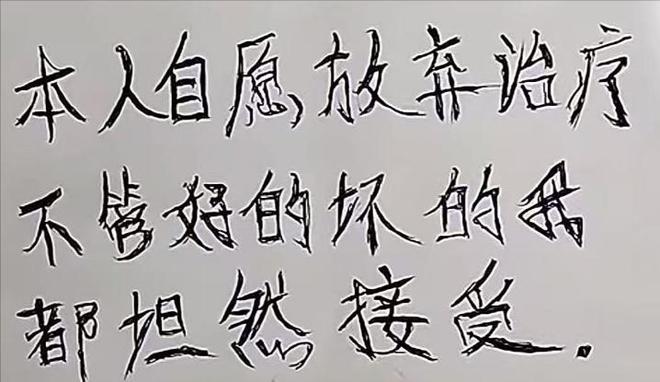 本人自愿放弃治疗
不管好的坏的我
都坦然接受.